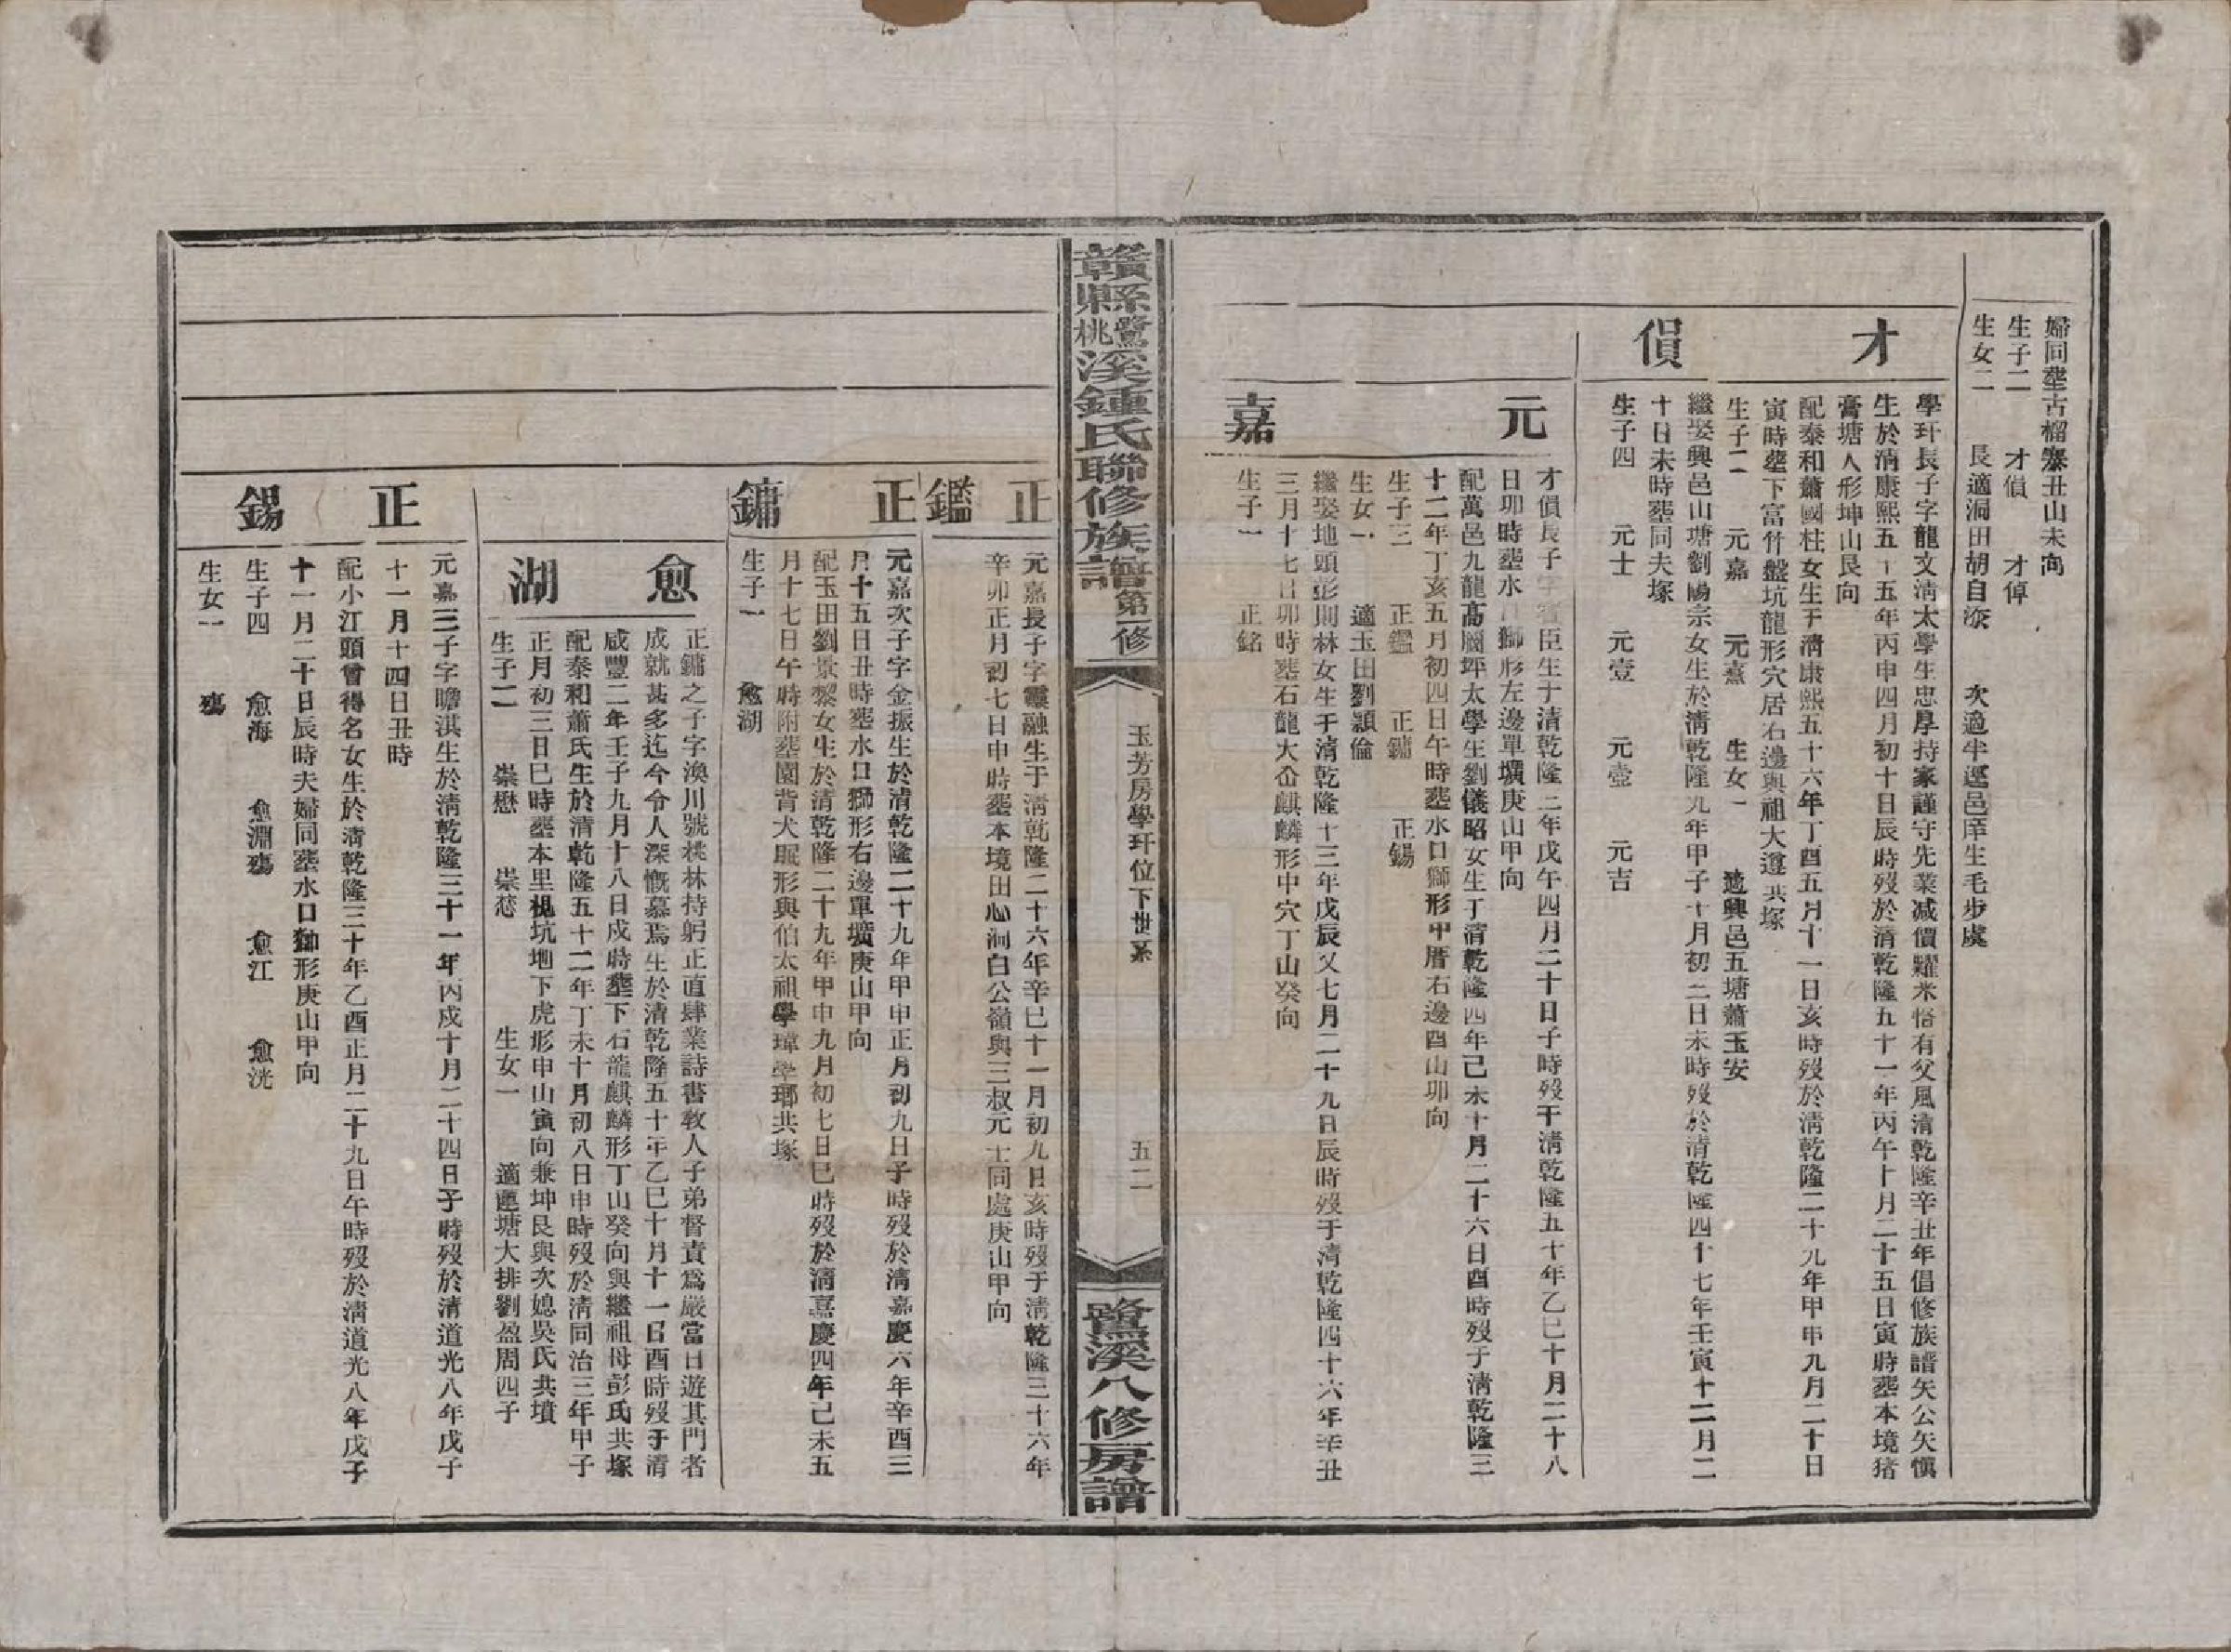 婦同塟古榴寨丑山未向
生子二 才傎 才倬
生女二 長適洞田胡自 次適半逕邑庠生毛步虞
才傎
學玕長子字龍文清太學生忠厚持家謹守先業減價糶米悟有父風清乾隆辛丑年倡修族譜矢公矢慎
生於清康熙五十五年丙申四月初十日辰時歿於清乾隆五十一年丙午十月二十五日寅時塟本境猪
膏塘人形坤山艮向
配泰和蕭國柱女生于清康熙五十六年丁酉五月十一日亥時歿於清乾隆二十九年甲申九月二十日
寅時塟下富竹盤坑龍形穴居右邊與祖大遵共塚
生子二 元嘉 元熹 生女一 適興邑五塘蕭玉安
繼娶興邑山塘劉陽宗女生於清乾隆九年甲子十月初二日未時歿於清乾隆四十七年壬寅十二月二
十日未時塟同夫塚
生子四 元士 元壹 元壼 元吉
元嘉
才傎長子字賓臣生于清乾隆三年戊午四月二十日子時歿于清乾隆五十年乙巳十月二十八
日卯時塟水口獅形左邊單壙庚山甲向
配萬邑九龍髙圳坪太學生劉儀昭女生于清乾隆四年己未十月二十六日酉時歿于清乾隆三
十二年丁亥五月初四日午時塟水口獅形甲厝右邊酉山卯向
生子三 正鑑 正鏞 正錫
生女一 適玉田劉穎倫
繼娶地頭彭則林女生于清乾隆十三年戊辰又七月二十九日辰時歿于清乾隆四十六年辛丑
三月十七日卯時塟石龍大㘵麒麟形中穴丁山癸向
生子一 正銘
贛縣鷺桃溪鍾氏聯修族譜第一修
玉芳房學玕位下世系
五二
鷺溪八修房譜
正鑑
元嘉長子字靈融生于清乾隆二十六年辛巳十一月初九日亥時歿于清乾隆三十六年
辛卯正月初七日申時塟本境田心洞白公嶺與三叔元士同處庚山甲向
正鏞
元嘉次子字金振生於清乾隆二十九年甲申正月初九日子時歿於清嘉慶六年辛酉三
月十五日丑時塟水口獅形右邊單壙庚山甲向
配玉田劉景黎女生於清乾隆二十九年甲申九月初七日巳時歿於清嘉慶四年己未五
月十七日午時附塟園背犬眠形與伯太祖學瑋學瑯共塚
生子一 愈湖
愈湖
正鏞之子字渙川號桃林持躬正直肆業詩書教人子弟督責爲嚴當日遊其門者
成就甚多迄今令人深慨慕焉生於清乾隆五十年乙巳十月十一日酉時歿于清
咸豐二年壬子九月十八日戌時塟下石龍麒麟形丁山癸向與繼祖母彭氏共塚
配泰和蕭氏生於清乾隆五十二年丁未十月初八日申時歿於清同治三年甲子
正月初三日巳時塟本里槐坑地下虎形申山寅向兼坤艮與次媳吳氏共墳
生子二 崇懋 崇 生女一 適蓮塘大排劉盈周四子
正錫
元嘉三子字瞻淇生於清乾隆三十一年丙戌十月二十四日子時歿於清道光八年戊子
十一月十四日丑時
配小江頭曾得名女生於清乾隆三十年乙酉正月二十九日午時歿於清道光八年戊子
十一月二十日辰時夫婦同塟水口獅形庚山甲向
生子四 愈海 愈淵殤 愈江 愈洸
生女一 殤